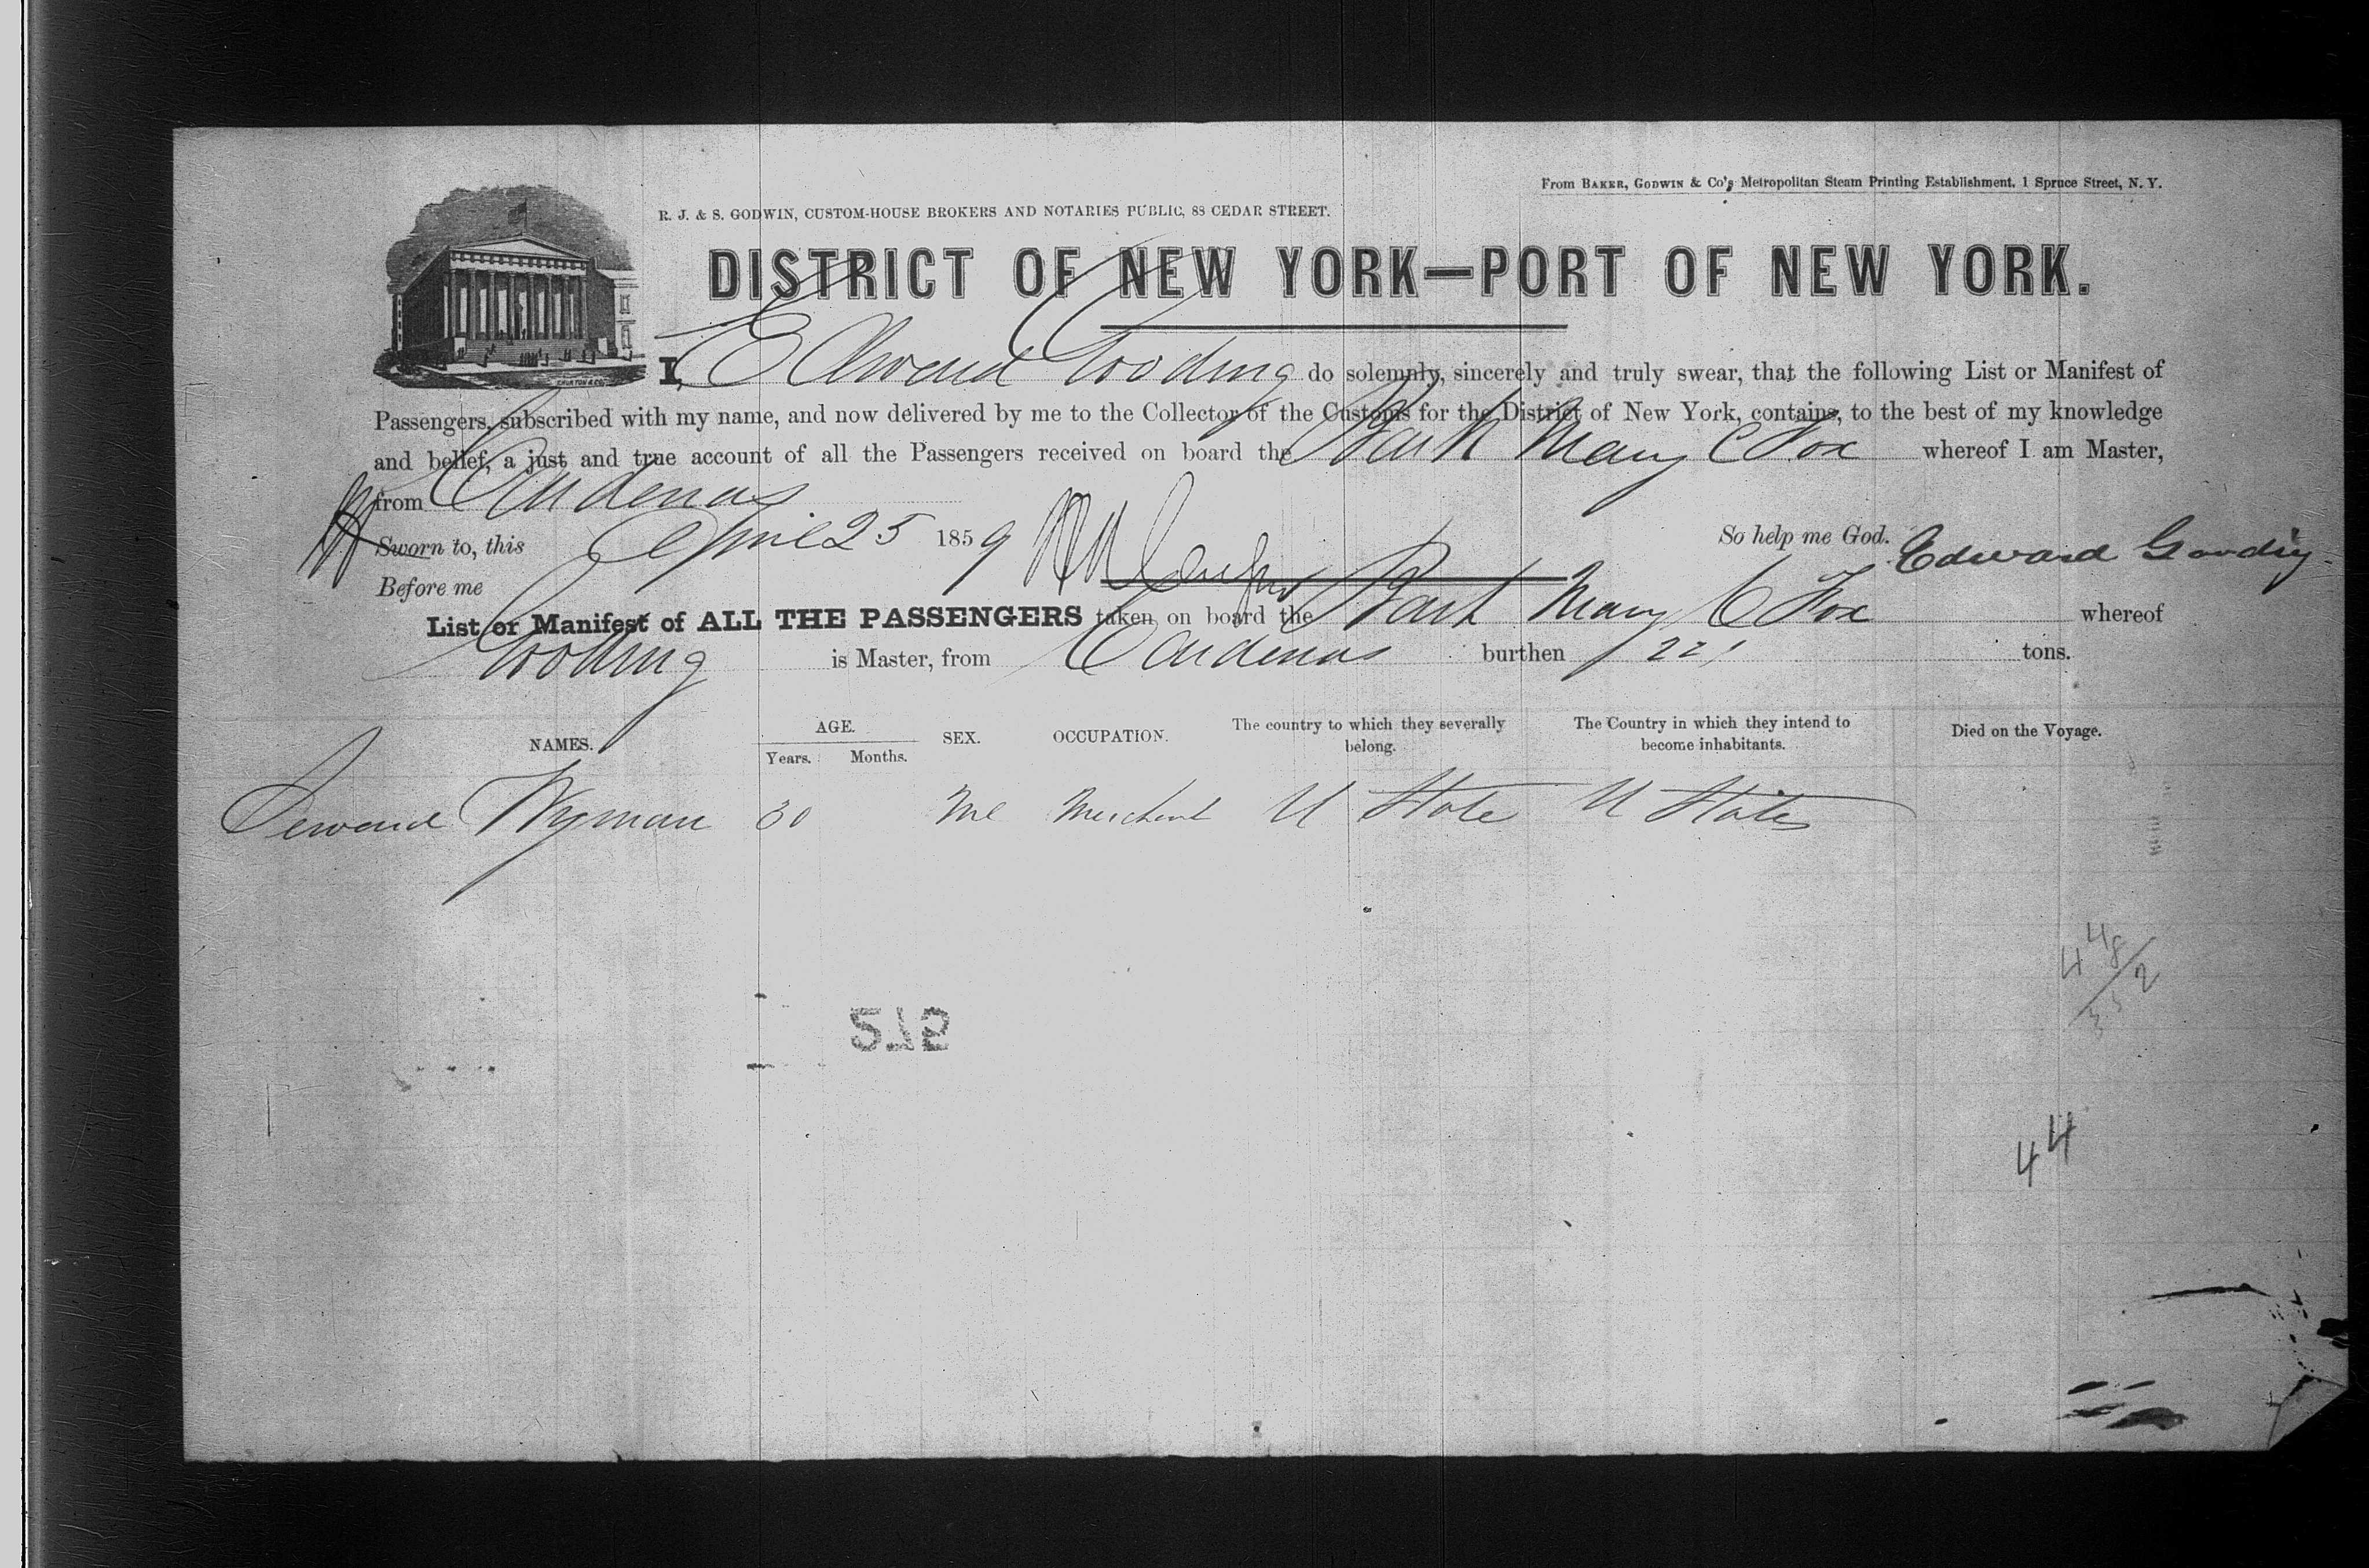 From BAKER, GODWIN & Co's Metropolitan Steam Printing Establishment, 1 Spruce Street, N. Y.
R. J. & S. GODWIN, CUSTOM-HOUSE BROKERS AND NOTARIES PUBLIC, 88 CEDAR STREET.
DISTRICT OF NEW YORK—PORT OF NEW YORK.
I, Edward Gooding do solemnly, sincerely and truly swear, that the following List or Manifest of
Passengers, subscribed with my name, and now delivered by me to the Collector of the Customs for the District of New York, contains, to the best of my knowledge
and belief, a just and true account of all the Passengers received on board the Bark Mary C Fox whereof I am Master,
from Cardenas
Sworn to, this April 25 1859 So help me God. Edward Gooding
Before me
List or Manifest of ALL THE PASSENGERS taken on board the Bark Mary C Fox whereof
Gooding is Master, from Cardenas burthen 221 tons.
NAMES. AGE. SEX. OCCUPATION. The country to which they severally belong. The Country in which they intend to become inhabitants. Died on the Voyage.
Years. Months.
Seward Wyman 30 Me Merchant U State U States
512
44